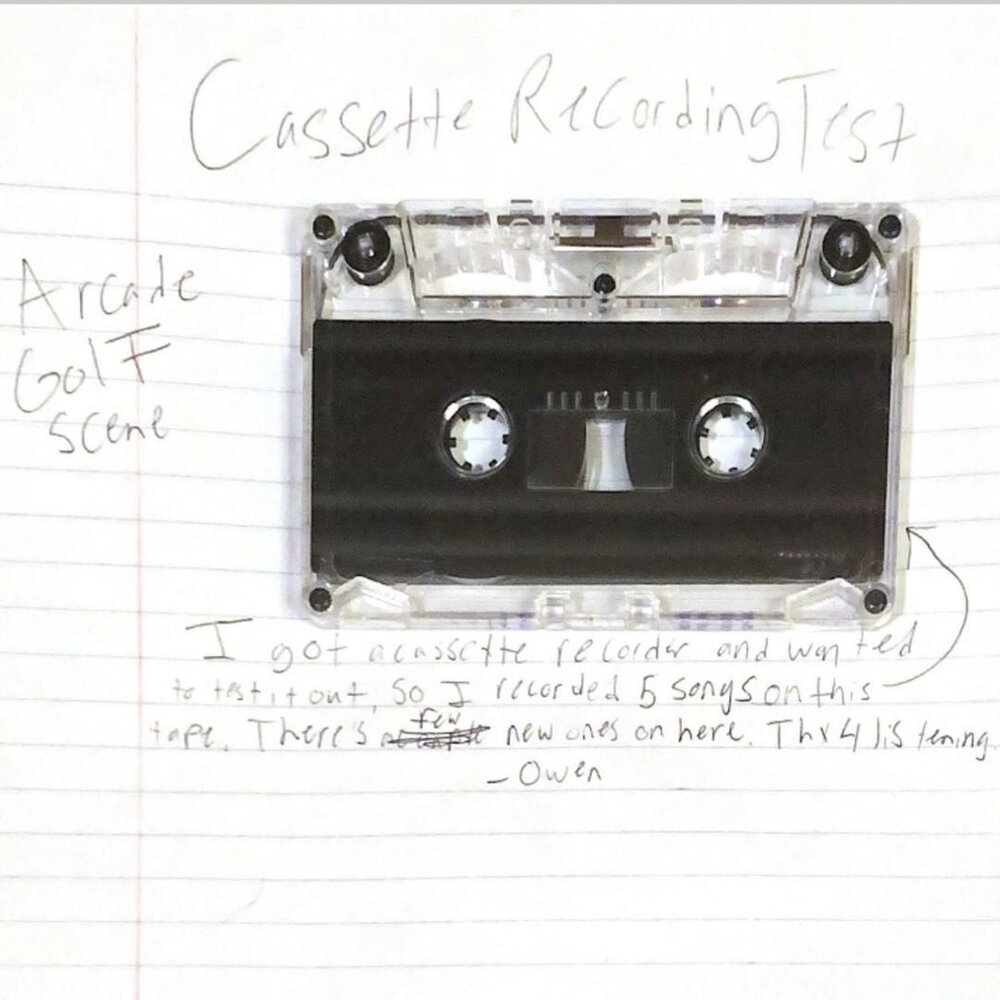 Cassette Recording Test
Arcade
Golf
scene
I got a cassette recorder and wanted
to test it out, so I recorded 5 songs on this
tape. There's few new ones on here. Thx 4 listening.
- Owen